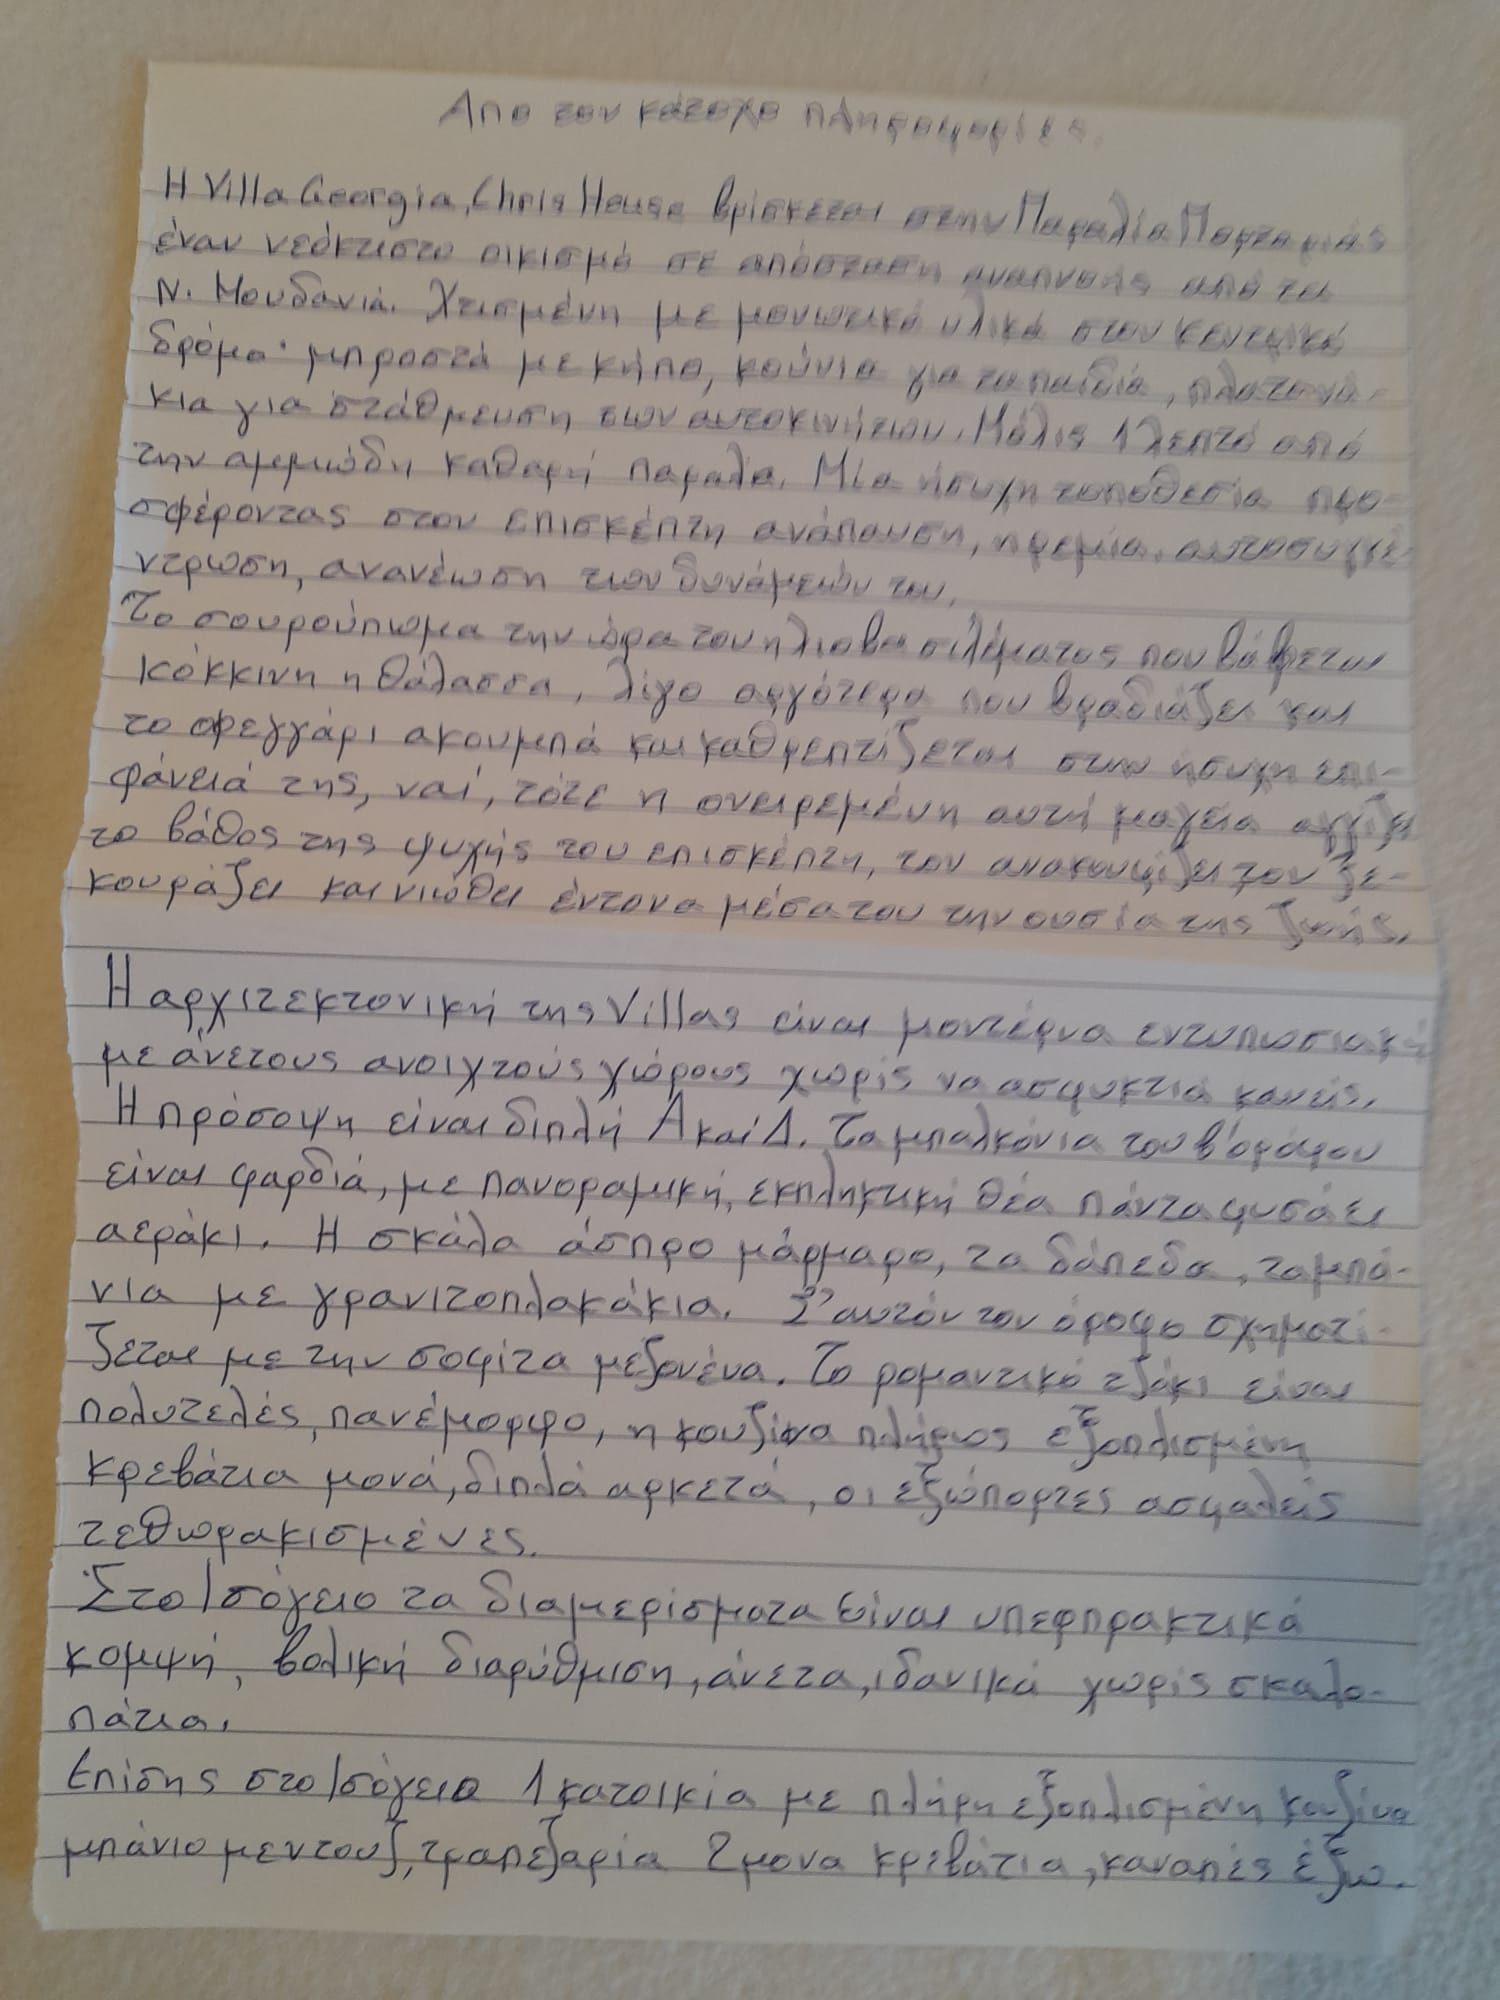 Απο τον κάτοχο πληροφορίες.
Η Villa Georgia, Chris House βρίσκεται στην Παραλία Πορταριάς
έναν νεόκτιστο οικισμό σε απόσταση αναπνοής από τα
Ν. Μουδανιά. Χτισμένη με μονωτικά υλικά στον κεντρικό
δρόμο· μπροστά με κήπο, κούνια για τα παιδιά, πλατονά-
κια για στάθμευση των αυτοκινήτων. Μόλις 1 λεπτό από
την αμμώδη καθαρή παραλα. Μία ήσυχη τοποθεσία προ-
σφέροντας στον επισκέπτη ανάπαυση, ηρεμία, αυτοσυγκέ-
ντρωση, ανανέωση των δυνάμεών του.
Το σουρούπωμα την ώρα του ηλιοβασιλέματος που βάφεται
κόκκινη η θάλασσα, λίγο αργότερα που βραδιάζει και
το φεγγάρι ακουμπά και καθρεπτίζεται στην ήσυχη επι-
φάνειά της, ναί, τότε η ονειρεμένη αυτή μαγεία αγγίζει
το βάθος της ψυχής του επισκέπτη, τον ανακουφίζει τον ξε-
κουράζει και νιώθει έντονα μέσα του την ουσία της ζωής.
Η αρχιτεκτονική της Villas είναι μοντέρνα εντυπωσιακή
με άνετους ανοιχτούς χώρους χωρίς να ασφυκτιά κανείς.
Η πρόσοψη είναι διπλή Α και Δ. Τα μπαλκόνια του β' ορόφου
είναι φαρδιά, με πανοραμική, εκπληκτική θέα πάντα φυσάει
αεράκι. Η σκάλα άσπρο μάρμαρο, τα δάπεδα, τα μπά-
νια με γρανιτοπλακάκια. Σ' αυτόν τον όροφο σχηματί-
ζεται με την σοφίτα μεζονένα. Το ρομαντικό τζάκι είναι
πολυτελές, πανέμορφο, η κουζίνα πλήρως εξοπλισμένη
κρεβάτια μονά, διπλά αρκετά, οι εξώπορτες ασφαλείς
τεθωρακισμένες.
Στο Ισόγειο τα διαμερίσματα είναι υπερπρακτικά
κομψή, βολική διαρύθμιση, άνετα, ιδανικά χωρίς σκαλο-
πάτια.
Επίσης στο Ισόγειο 1 κατοικία με πλήρη εξοπλισμένη κουζίνα
μπάνιο με ντουζ, τραπεζαρία 2 μονα κρεβάτια, καναπές έξω.